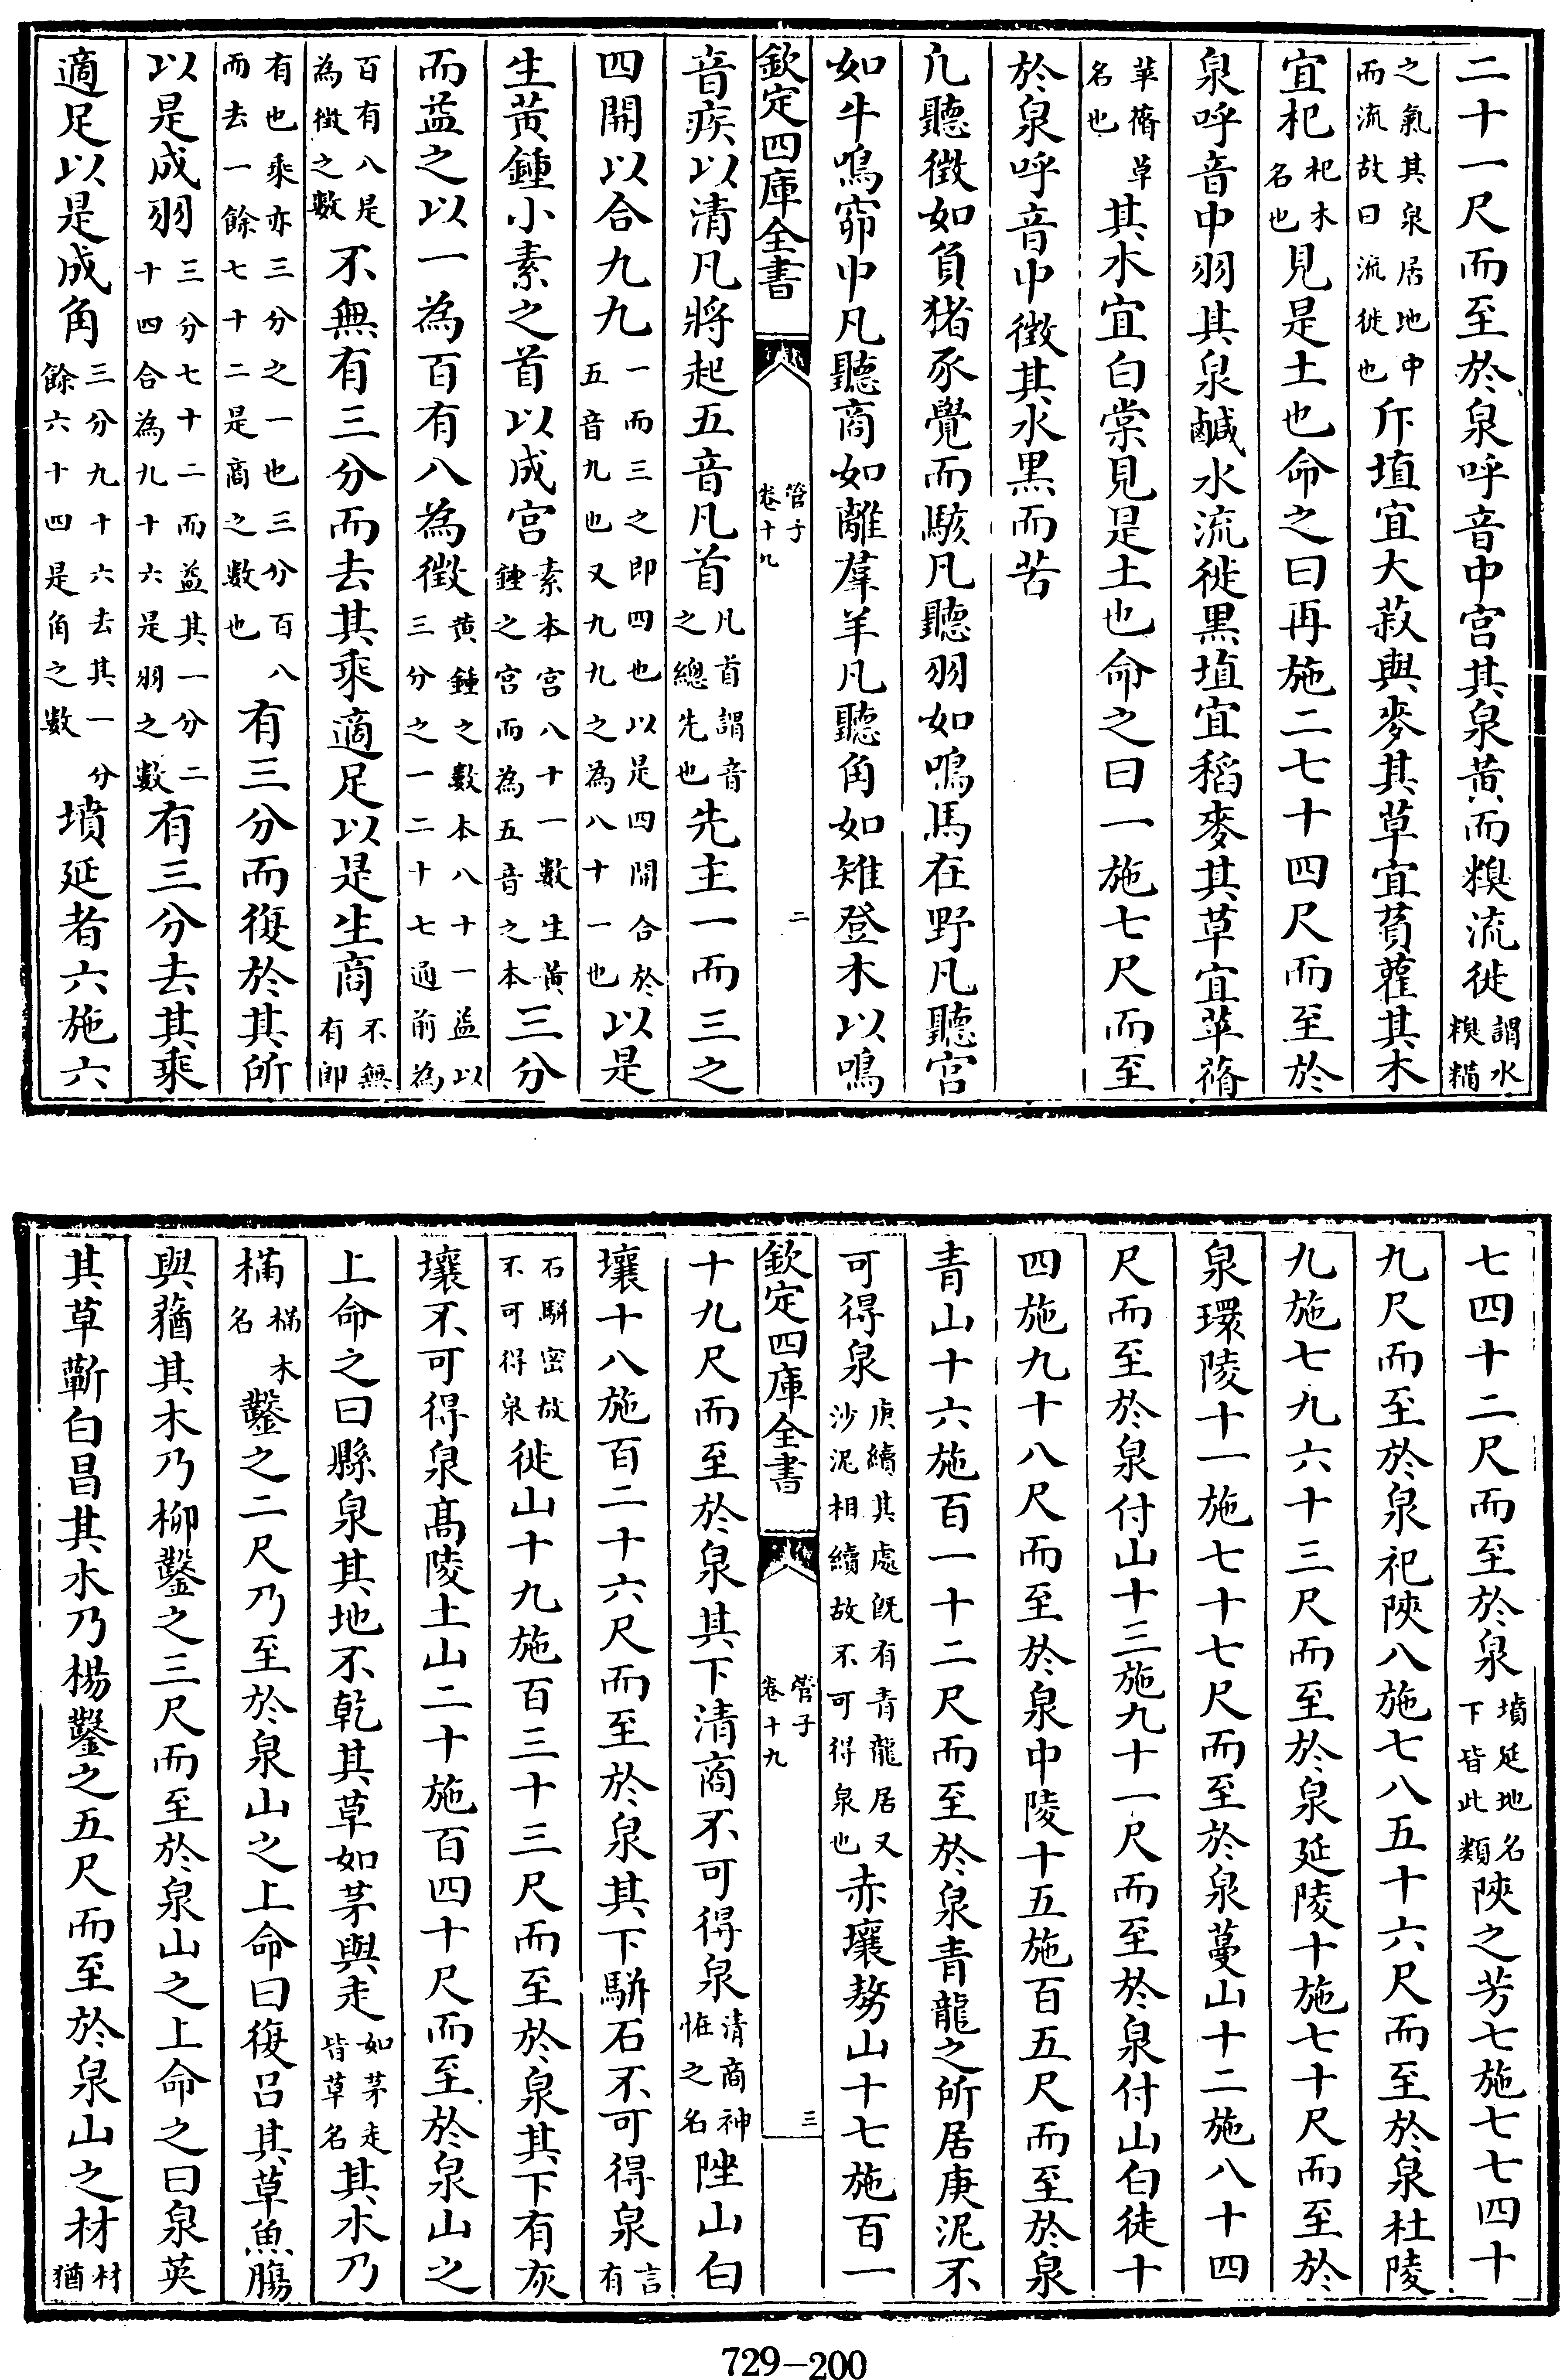 二十一尺而至於泉呼音中宫其泉黄而糗流徙謂水糗糒
之氣其泉居地中而流故曰流徙也斥埴宜大菽與麥其草宜萯雚其木
宜杞杞木名也見是土也命之曰再施二七十四尺而至於
泉呼音中羽其泉鹹水流徙黒埴宜稻麥其草宜苹蓨
苹蓨草名也其木宜白棠見是土也命之曰一施七尺而至
於泉呼音中徵其水黒而苦
凡聽徵如負猪豕覺而駭凡聽羽如鳴馬在野凡聽宫
如牛鳴窌中凡聽商如離羣羊凡聽角如雉登木以鳴
欽定四庫全書 管子卷十九 二
音疾以清凡將起五音凡首凡首謂音之總先也先主一而三之
四開以合九九一而三之即四也以是四開合於五音九也又九九之為八十一也以是
生黄鍾小素之首以成宫素本宫八十一數生黄鍾之宫而為五音之本三分
而益之以一為百有八為徵黄鍾之數本八十一益以三分之一二十七通前為
百有八是為徵之數不無有三分而去其乘適足以是生商不無有即
有也乘亦三分之一也三分百八而去一餘七十二是商之數也有三分而復於其所
以是成羽三分七十二而益其一分二十四合為九十六是羽之數有三分去其乘
適足以是成角三分九十六去其一分餘六十四是角之數墳延者六施六
七四十二尺而至於泉墳延地名下皆此類陜之芳七施七七四十
九尺而至於泉祀陜八施七八五十六尺而至於泉杜陵
九施七九六十三尺而至於泉延陵十施七十尺而至於
泉環陵十一施七十七尺而至於泉蔓山十二施八十四
尺而至於泉付山十三施九十一尺而至於泉付山白徒十
四施九十八尺而至於泉中陵十五施百五尺而至於泉
青山十六施百一十二尺而至於泉青龍之所居庚泥不
可得泉庚續其處既有青龍居又沙泥相續故不可得泉也赤壤磝山十七施百一
欽定四庫全書 管子卷十九 三
十九尺而至於泉其下清商不可得泉清商神怪之名陛山白
壤十八施百二十六尺而至於泉其下駢石不可得泉言有
石駢密故不可得泉徙山十九施百三十三尺而至於泉其下有灰
壤不可得泉髙陵土山二十施百四十尺而至於泉山之
上命之曰縣泉其地不乾其草如茅與走如茅走皆草名其木乃
樠樠木名鑿之二尺乃至於泉山之上命曰復吕其草魚腸
與蕕其木乃柳鑿之三尺而至於泉山之上命之曰泉英
其草蘄白昌其木乃楊鑿之五尺而至於泉山之材材猶
729—200